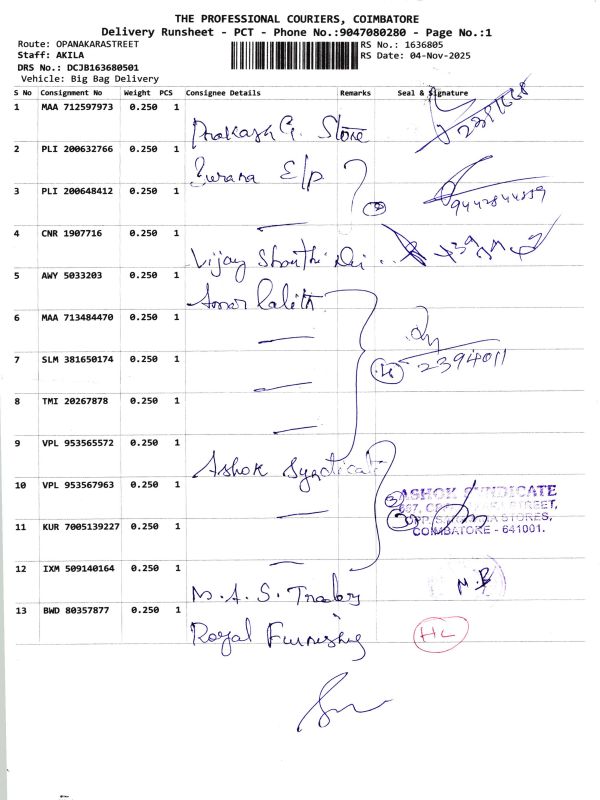 THE PROFESSIONAL COURIERS, COIMBATORE
Delivery Runsheet - PCT - Phone No.:9047080280 - Page No.:1
Route: OPANAKARASTREET
Staff: AKILA
DRS No.: DCJB163680501
Vehicle: Big Bag Delivery
RS No.: 1636805
RS Date: 04-Nov-2025
S No Consignment No Weight PCS Consignee Details Remarks Seal & Signature
1 MAA 712597973 0.250 1
Prakash G. Store
2 PLI 200632766 0.250 1
E/p
3 PLI 200648412 0.250 1
2
4 CNR 1907716 0.250 1
Vijay
5 AWY 5033203 0.250 1
Amar Lalith
6 MAA 713484470 0.250 1
7 SLM 381650174 0.250 1
4 2394011
8 TMI 20267878 0.250 1
9 VPL 953565572 0.250 1
Ashok Syndicate
10 VPL 953567963 0.250 1
3 ASHOK SYNDICATE
STREET,
STORES,
COIMBATORE - 641001.
11 KUR 7005139227 0.250 1
12 IXM 509140164 0.250 1
M.A.S. Traders
M.B
13 BWD 80357877 0.250 1
Royal Furnishing
HL